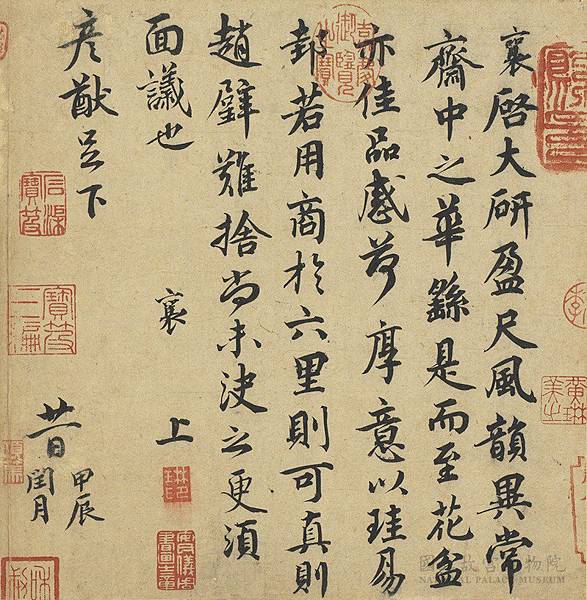 襄啓大研盈尺風韻異常
齋中之華繇是而至花盆
亦佳品感荷厚意以珪易
邽若用商於六里則可真則
趙璧難捨尚未決之更須
面議也
襄上
彥猷足下
廿一日
甲辰
閏月
國立故宮博物院
NATIONAL PALACE MUSEUM